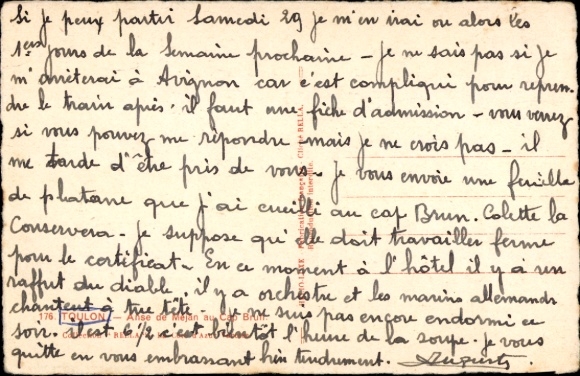 Si je peux partir Samedi 29 je m'en irai ou alors les
1ers jours de la Semaine prochaine - je ne sais pas si je
m'arrêterai à Avignon car c'est compliqué pour repren-
dre le train après. il faut une fiche d'admission - vous verrez
si vous pouvez me répondre mais je ne crois pas - il
me tarde d'être près de vous. Je vous envoie une feuille
de platane que j'ai cueilli au cap Brun. Colette la
Conservera - je suppose qu'elle doit travailler ferme
pour le certificat - En ce moment à l'hôtel il y a un
raffut du diable, il y a orchestre et les marins allemands
chantent à tue tête
176. TOULON — Anse de Méjan au Cap Brun
je ne suis pas encore endormi ce
soir. il est 6½ c'est bientôt l'heure de la soupe. je vous
quitte en vous embrassant bien tendrement.